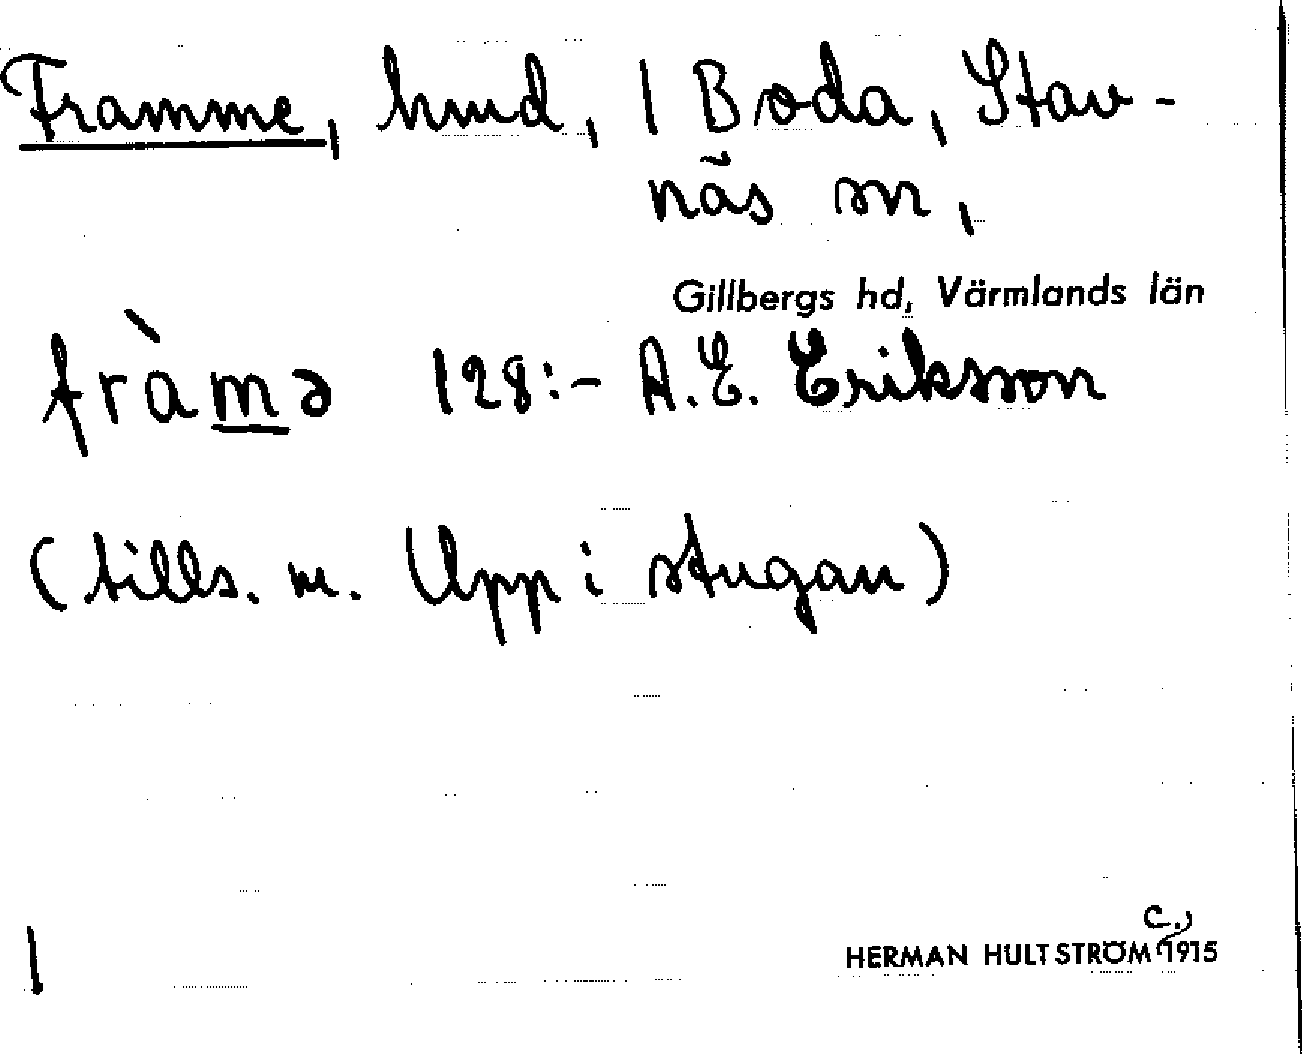 Framme, hmd, 1 Boda, Stav-
näs sn,
Gillbergs hd, Värmlands län
fràmə 128:- A.E. Eriksson
(tills. m. Upp i stugan)
C.,
1 HERMAN HULTSTRÖM 1915